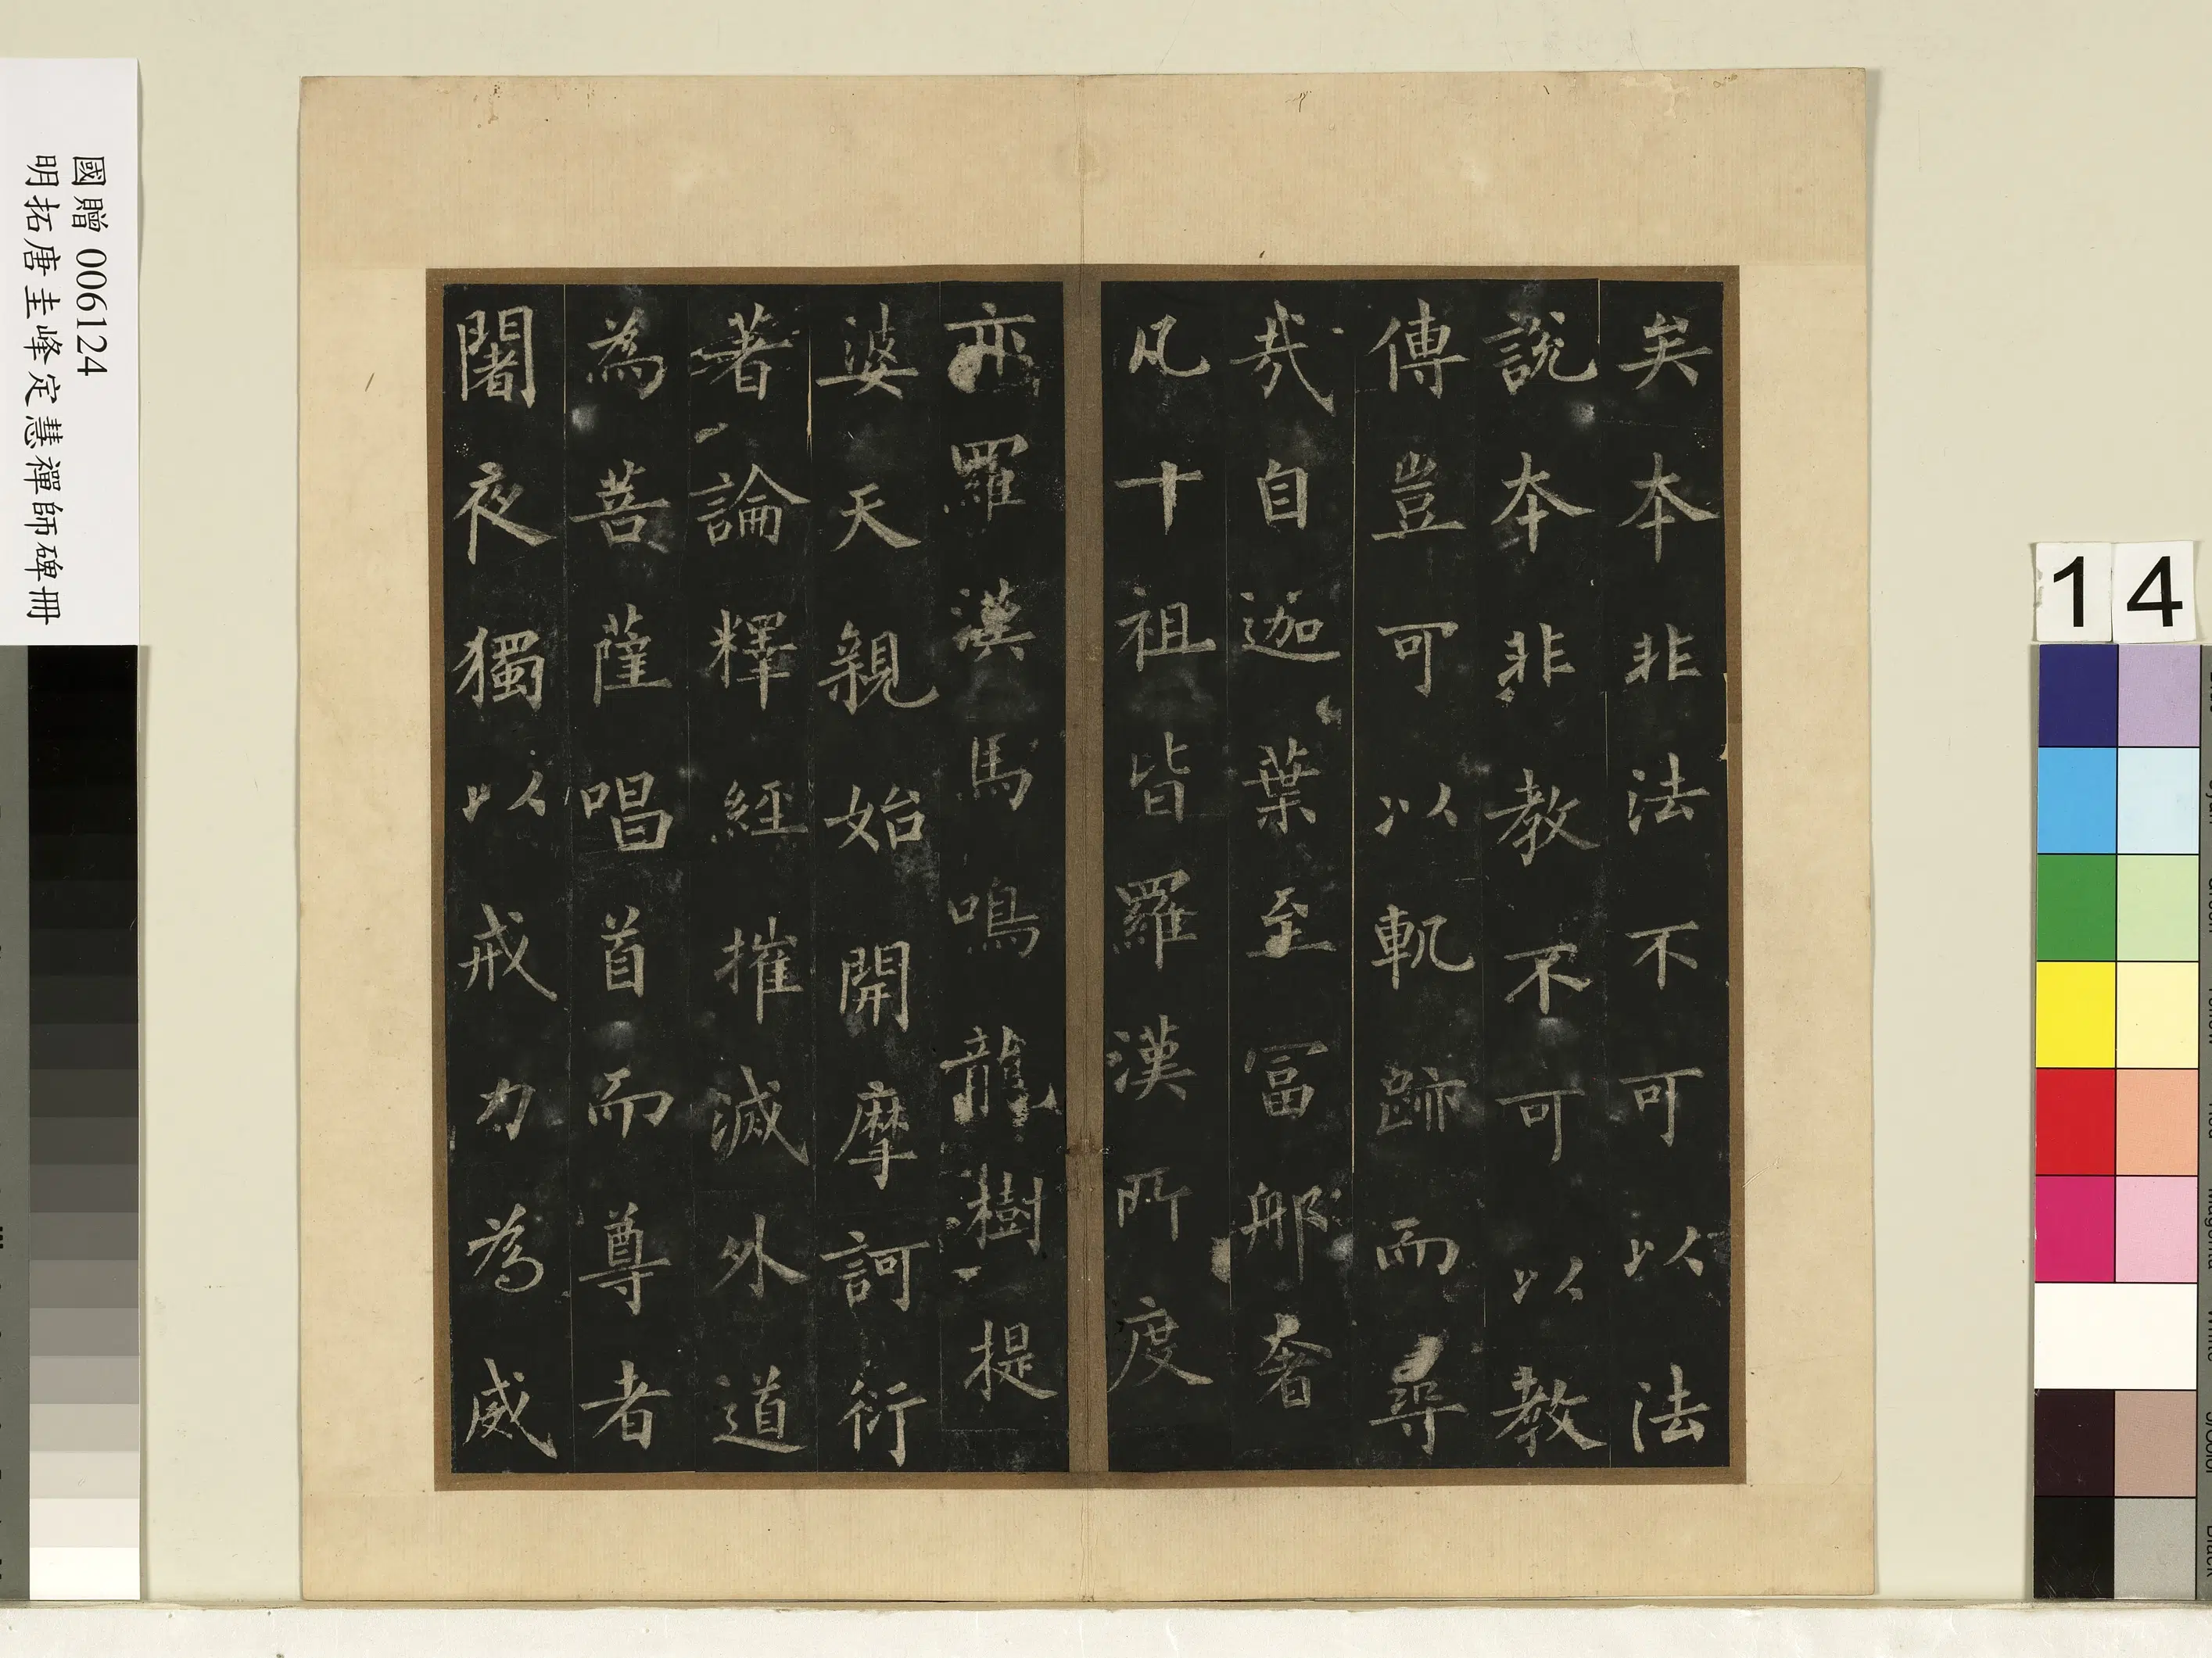 矣本非法不可以法
說本非教不可以教
傳豈可以軌跡而尋
㢤自迦葉至冨那奢
凡十祖皆羅漢所度
亦羅漢馬鳴龍樹提
婆天親始開摩訶衍
著論釋經摧滅外道
為菩薩唱首而尊者
闍夜獨以戒力為威
國贈 006124
明拓唐圭峰定慧禪師碑冊
14